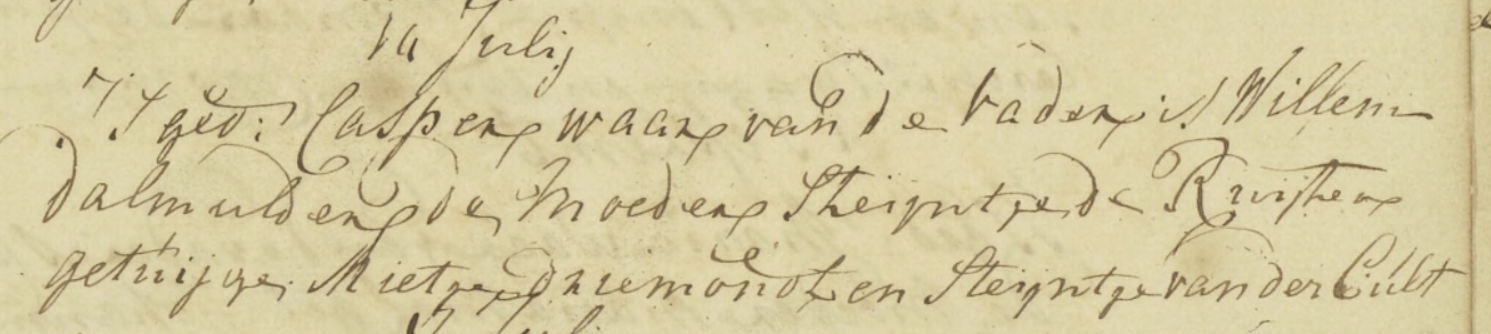 14 Julij
Is ged: Casper waar van de vader is Willem
dalmulder de Moeder Steijntje de Ruijter
getuijge Mietje driemondt en Steijntje van der Cult